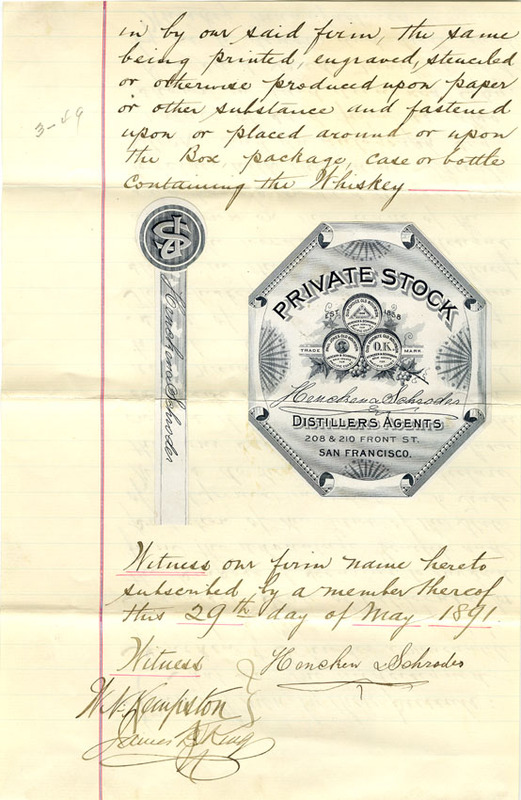 in by our said firm, the same
being printed, engraved, stenciled
or otherwise produced upon paper
or other substance and fastened
upon or placed around or upon
the Box, package, case or bottle
containing the Whiskey
3-89
PRIVATE STOCK
EST. 1868
TRADE MARK
O.K.
Hencken & Schroder
DISTILLERS AGENTS
208 & 210 FRONT ST.
SAN FRANCISCO.
Hencken & Schroder
Witness our firm name hereto
subscribed by a member thereof
this 29th day of May 1891.
Witness
Hencken & Schroder
W. N. Kempston
James L. King